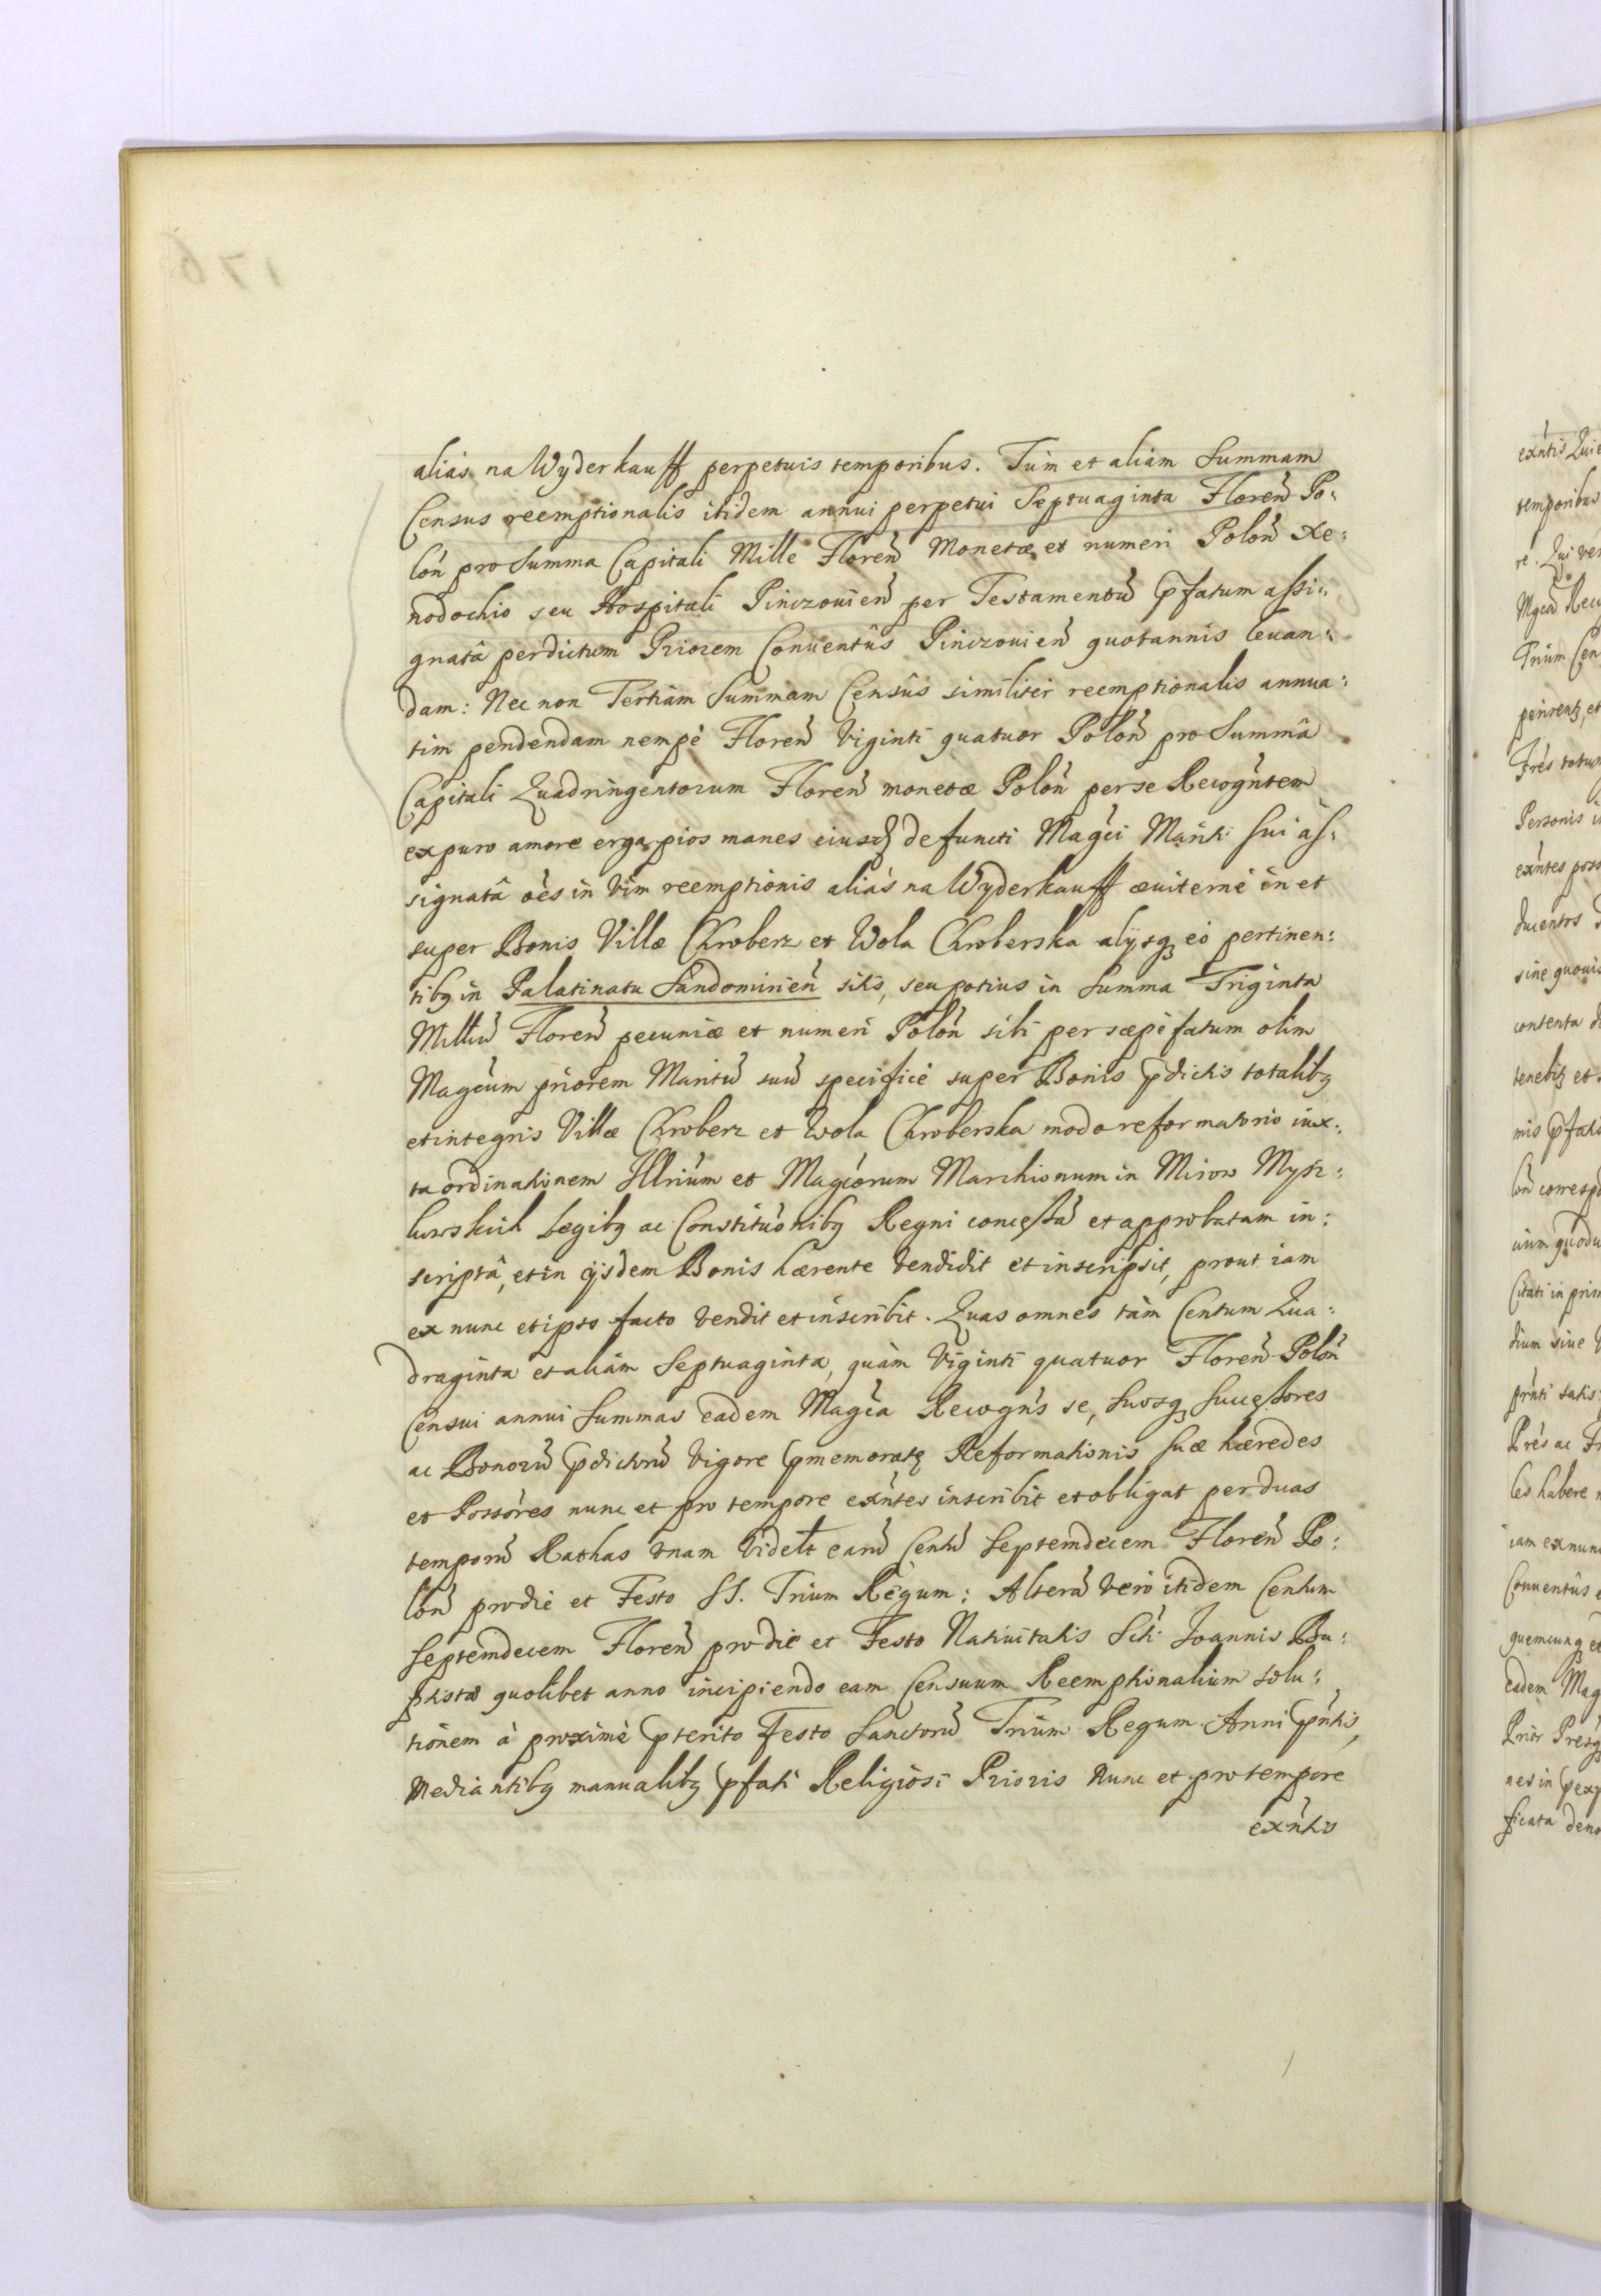 aliàs na Wyderkauff perpetuis temporibus. Tùm et aliàm Summam
Census reemptionalis itidem annui perpetui Septuaginta Floreñ Po:
lóñ pro Summa Capitali Mille Floreñ Monetæ et numeri Polóñ Xe:
nodochio seu Hospitali Pinczovieñ per Testamentū p̄fatum assi:
gnatâ perdictum Priorem Conventûs Pinczovieñ quotannis levan:
dam: Nec non Tertiàm Summam Censûs similiter reemptionalis annua:
tim pendendam nempè Floreñ Viginti quatuor Polóñ pro Summâ
Capitali Quadringentorum Floreñ monetæ Polóñ per se Recogñtem
ex puro amore erga pios manes eiusd defuncti Magći Mariti sui as:
signatâ oẽs in Vim reemptionis aliàs na Wyderkauff æviternè in et
super Bonis Villæ Chroberz et Wola Chroberska alijsq; eò pertinen:
tibq; in Palatinatu Sandomirieñ sitis, seu potius in Summa Triginta
Milliū Floreñ pecuniæ et numeri Polóñ sibi per sæpèfatum olim
Magćum priorem Maritū suū specificè super Bonis p̄dictis totalibq;
et integris Villæ Chroberz et Wola Chroberska modo reformatorio iux:
ta ordinationem Illrium et Magćorum Marchionum in Mirow Mysz:
kowskich Legibq; ac Constituõnibq; Regni concessā et approbatam in:
scriptâ, et in ijsdem Bonis hærente vendidit et inscripsit, prout iam
ex nunc et ipso facto vendit et inscribit. Quas omnes tàm Centum Qua:
draginta et aliàm Septuaginta, quàm Viginti quatuor Floreñ Polóñ
Censui annui Summas eadem Magća Recogñs se, suosq; successores
ac Bonorū p̄dictorū vigore p̄memoratę Reformationis suæ hæredes
et Possõres nunc et pro tempore exñtes inscribit et obligat per duas
temporū Rathas unam Videlt earū Centū Septemdecem Floreñ Po:
lóñ pro die et Festo SS. Trium Regum: Alterā verò itidem Centum
Septemdecem Floreñ pro die et Festo Nativitatis Scti Joannis Ba:
ptistæ quolibet anno incipiendo eam Censuum Reemptionalium solu:
tionem à proximè p̄terito Festo Sanctorū Trium Regum Anni p̄ntis,
Mediantibq; manualibq; p̄fati Religiosi Prioris Nunc et pro tempore
exñtis